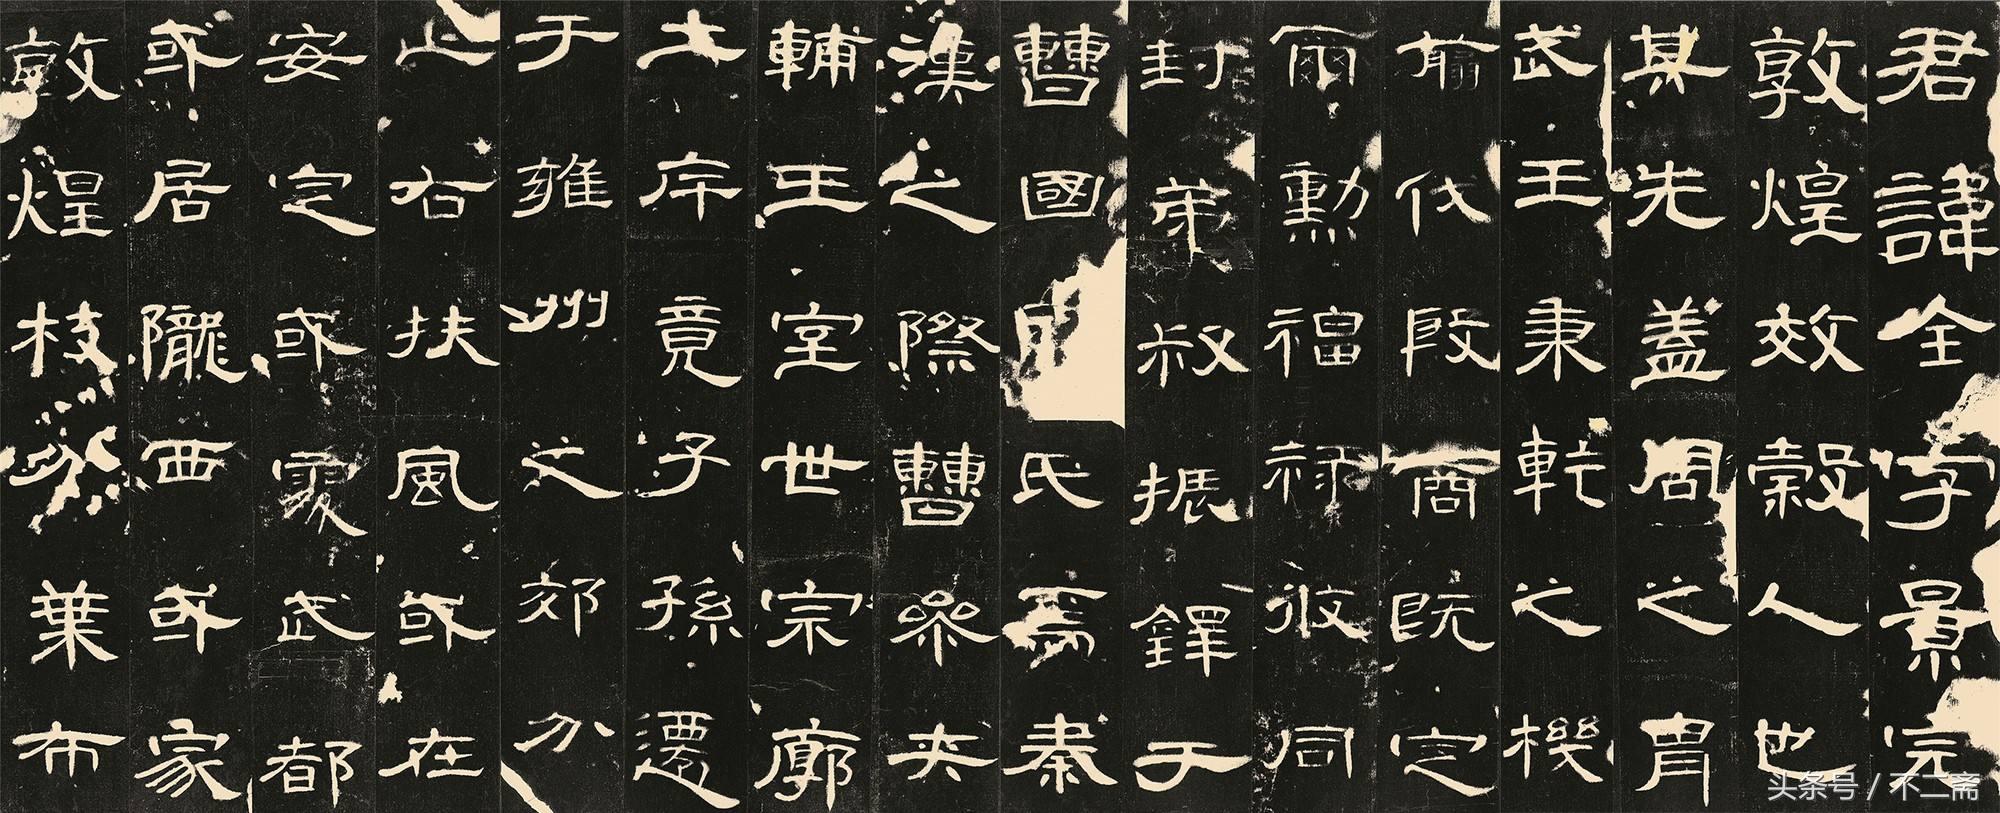 君諱全字景完
敦煌效穀人也
其先蓋周之胄
武王秉乾之機
翦伐殷商既定
爾勳福祿攸同
封弟叔振鐸于
曹國因氏焉秦
漢之際曹參夾
輔王室世宗廓
土斥竟子孫遷
于雍州之郊分
止右扶風或在
安定或處武都
或居隴西或家
敦煌枝分葉布
头条号 / 不二斋